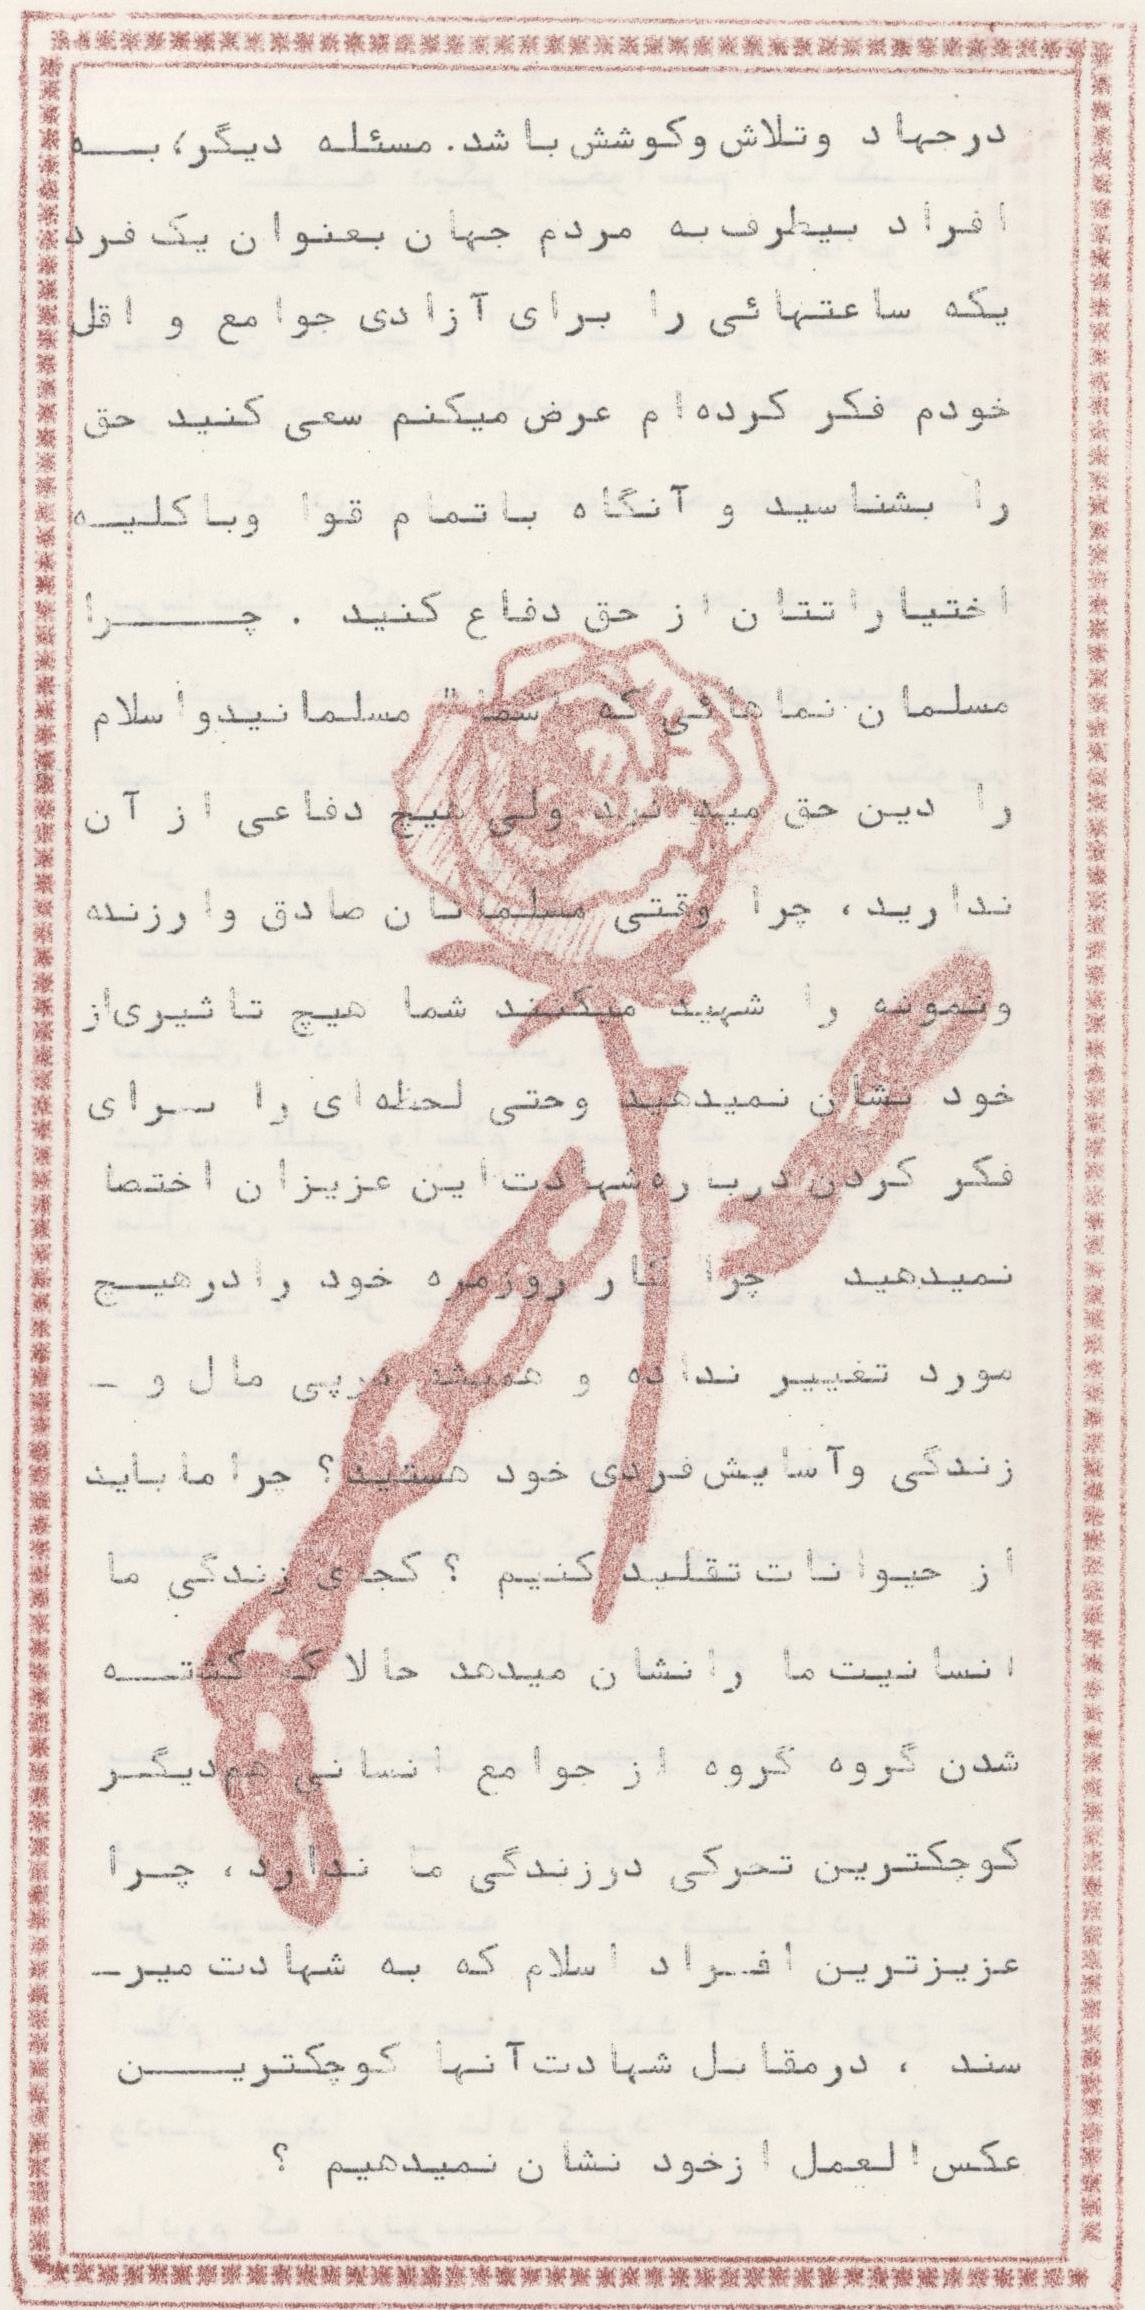 درجهاد وتلاش وکوشش باشد. مسئله دیگر، بـــه
افراد بیطرف به مردم جهان بعنوان یک فرد
یکه ساعتهائی را برای آزادی جوامع و اقل
خودم فکر کرده‌ام عرض میکنم سعی کنید حق
را بشناسید و آنگاه باتمام قوا وبا کلیـه
اختیاراتتان از حق دفاع کنید . چــــرا
مسلمان نماهائی که اسما" مسلمانیدواسلام
را دین حق میدانید ولی هیچ دفاعی از آن
ندارید، چرا وقتی مسلمانان صادق وارزنده
ونمونه را شهید میکنند شما هیچ تاثیری‌از
خود نشان نمیدهید وحتی لحظه‌ای را سرای
فکر کردن درباره‌شهادت این عزیزان اختصا
نمیدهید چرا کار روزمره خود رادرهیـچ
مورد تغییر نداده و همیشه درپی مال و ـ
زندگی وآسایش‌فردی خود هستید؟ چرا ما باید
از حیوانات تقلید کنیم ؟ کجای زندگی ما
انسانیت ما را نشان میدهد حالا که کشتـــه
شدن گروه گروه از جوامع انسانی هم‌دیگـر
کوچکترین تحرکی درزندگی ما ندارد، چـرا
عزیزترین افـراد اسلام که به شهادت میر‌ـ
سند ، درمقابل شهادت‌آنها کوچکتریــــن
عکس‌العمل ازخود نشان نمیدهیم ؟